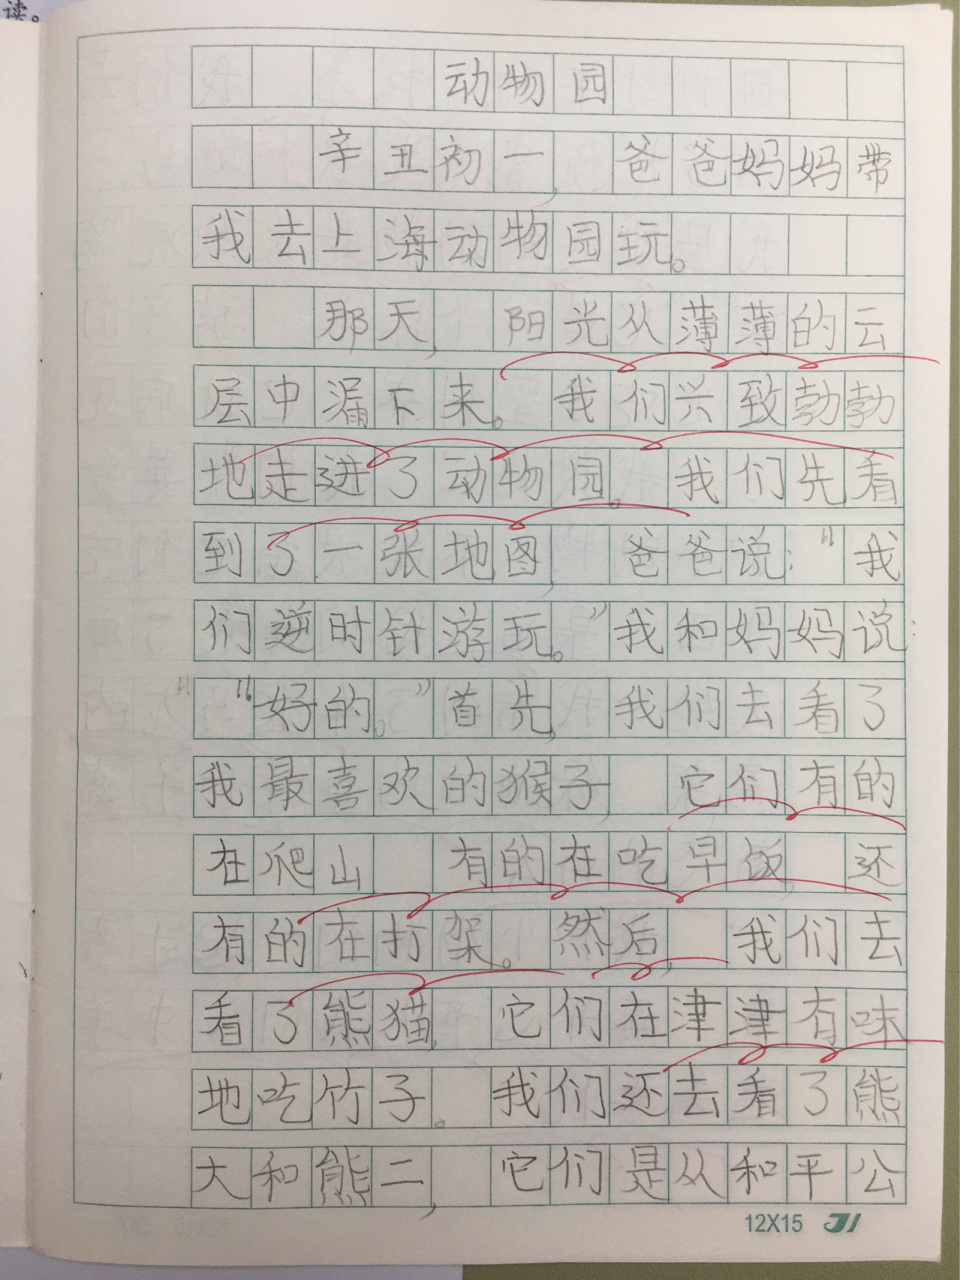 读。
动物园
辛丑初一,爸爸妈妈带
我去上海动物园玩。
那天,阳光从薄薄的云
层中漏下来。我们兴致勃勃
地走进了动物园。我们先看
到了一张地图,爸爸说:“我
们逆时针游玩。”我和妈妈说:
“好的。”首先,我们去看了
我最喜欢的猴子,它们有的
在爬山 有的在吃早饭,还
有的在打架。然后,我们去
看了熊猫,它们在津津有味
地吃竹子。我们还去看了熊
大和熊二,它们是从和平公
12X15